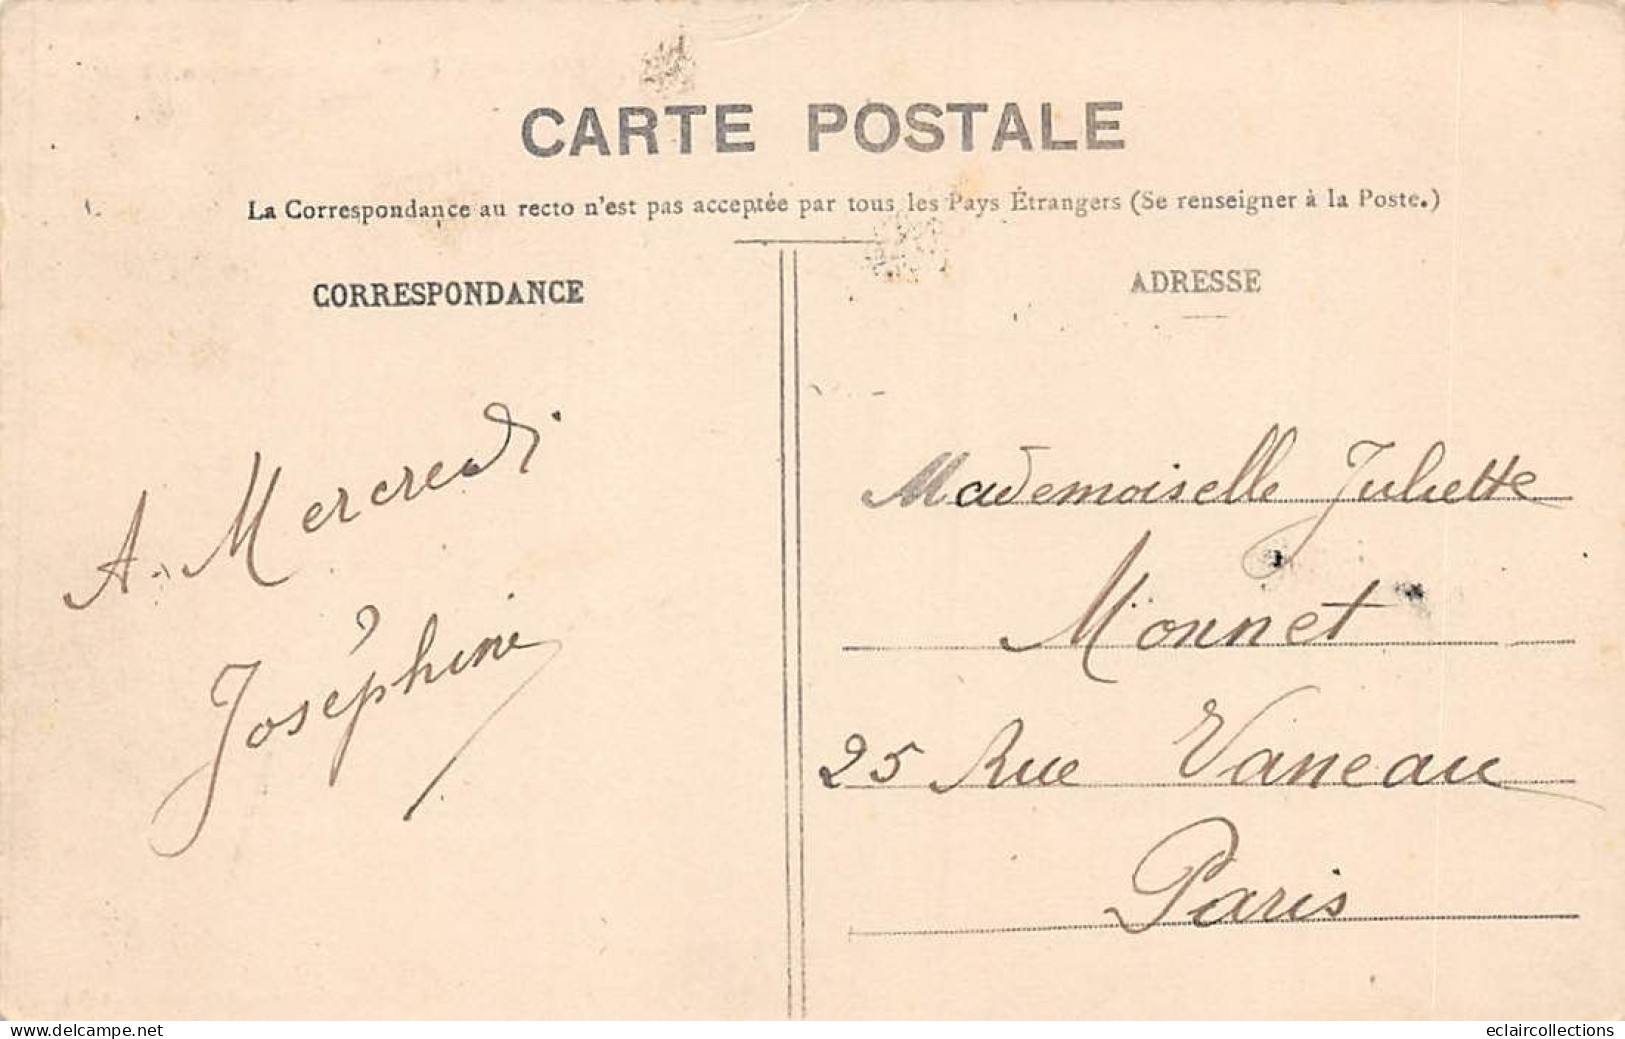 CARTE POSTALE
La Correspondance au recto n'est pas acceptée par tous les Pays Étrangers (Se renseigner à la Poste.)
CORRESPONDANCE
A. Mercredi
Joséphine
ADRESSE
Mademoiselle Juliette
Monnet
25 Rue Vaneau
Paris
www.delcampe.net
eclaircollections